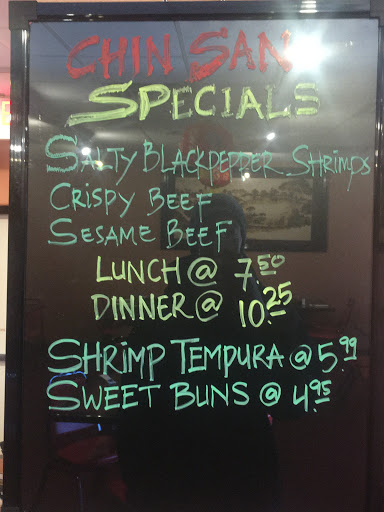 CHIN SAN
SPECIALS
SALTY BLACKPEPPER SHRIMPS
CRISPY BEEF
SESAME BEEF
LUNCH @ 7.50
DINNER @ 10.25
SHRIMP TEMPURA @ 5.99
SWEET BUNS @ 4.95